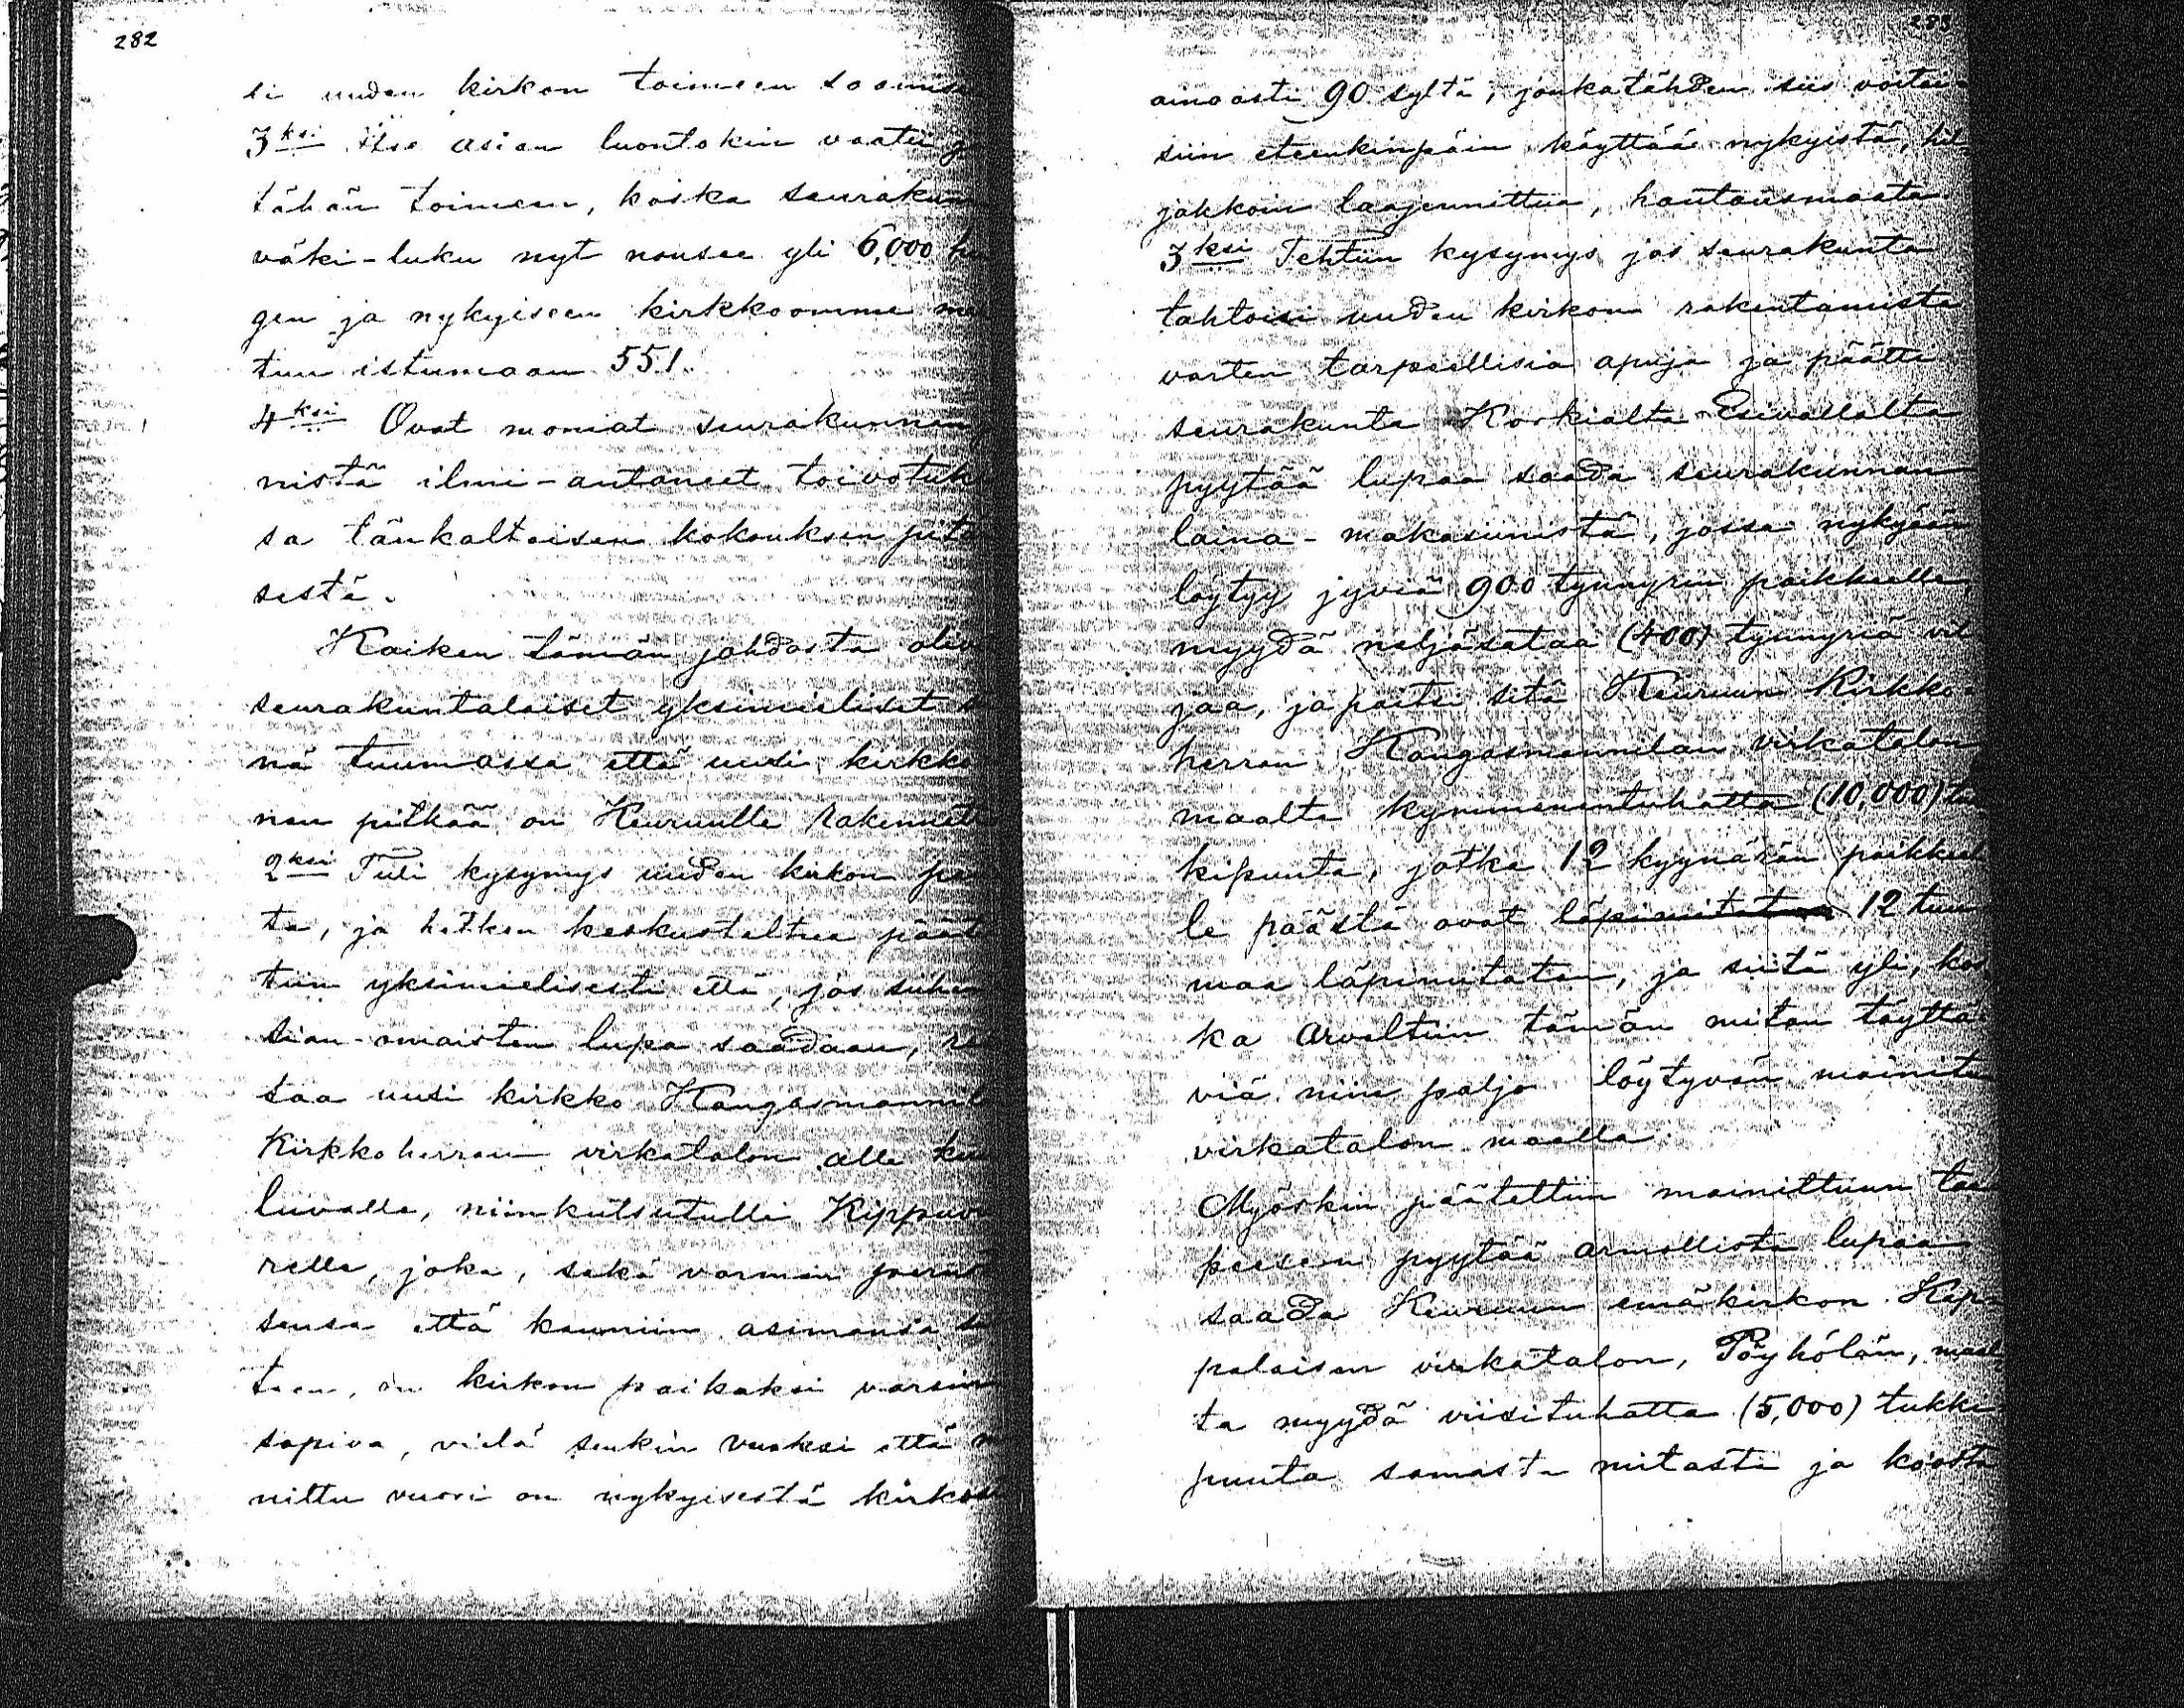 282
si uuden kirkon toimeen saamise
3ksi Itse asian luontokin vaatii
tähän toimeen, koska seurakun
väki-luku nyt nousee yli 6,000 hen
gen ja nykyiseen kirkkoomme ma
tuu istumaan 551.
4ksi Ovat moniat seurakunnan
nistä ilmi-antaneet toivotuk
sa tänkaltaisen kokouksen pitä
sestä.
Kaiken tämän johdosta oliva
seurakuntalaiset yksimieliset s
nä tuumassa että uusi kirkko
nen pitkää on Keuruulle rakennet
2ksi Tuli kysymys uuden kirkon pa
ta, ja hetken keskusteltua päät
tiin yksimielisesti että, jos siihen
sian-omaisten lupa saadaan, ra
taa uusi kirkko Kangasmannil
Kirkkoherran virkatalon alle kuu
luvalle, niinkutsutulle Kippavu
relle, joka, sekä varman perust
sensa että kauniin asemansa su
teen, on kirkon paikaksi varsin
sopiva, vielä senkin vuoksi että m
nittu vuori on nykyisestä kirkosta
283
ainoasti 90 syltä, jonkatähden siis voitai-
siin eteenkinpäin käyttää nykyistä, hil-
jakkoin laajennittua, hautausmaata.
3ksi Tehtiin kysymys jos seurakunta
tahtoisi uuden kirkon rakentamista
varten tarpeellisia apuja ja päätti
seurakunta Korkialta Esivallalta
pyytää lupaa saada seurakunnan
laina-makasiinista, jossa nykyään
löytyy jyviä 900 tynnyrin paikkeelle,
myydä neljäsataa (400) tynnyriä vil
jaa, ja paitsi sitä Keuruun Kirkko-
herran Kangasmannilan virkatalon
maalta kymmenentuhatta (10,000) tuk
kipuuta, jotka 12 kyynärän paikkeel
le päästä ovat läpimitatun 12 tuu
maa läpimitaten, ja siitä yli, kos
ka arveltiin tämän mitan täyttä
viä niin paljo löytyvän mainitun
virkatalon maalla.
Myöskin päätettiin mainittuun tar
peeseen pyytää armollista lupaa
saada Keuruun emäkirkon Kap-
palaisen virkatalon, Pöyhölän, maal
ta myydä viisituhatta (5,000) tukki
puuta samasta mitasta ja koosta